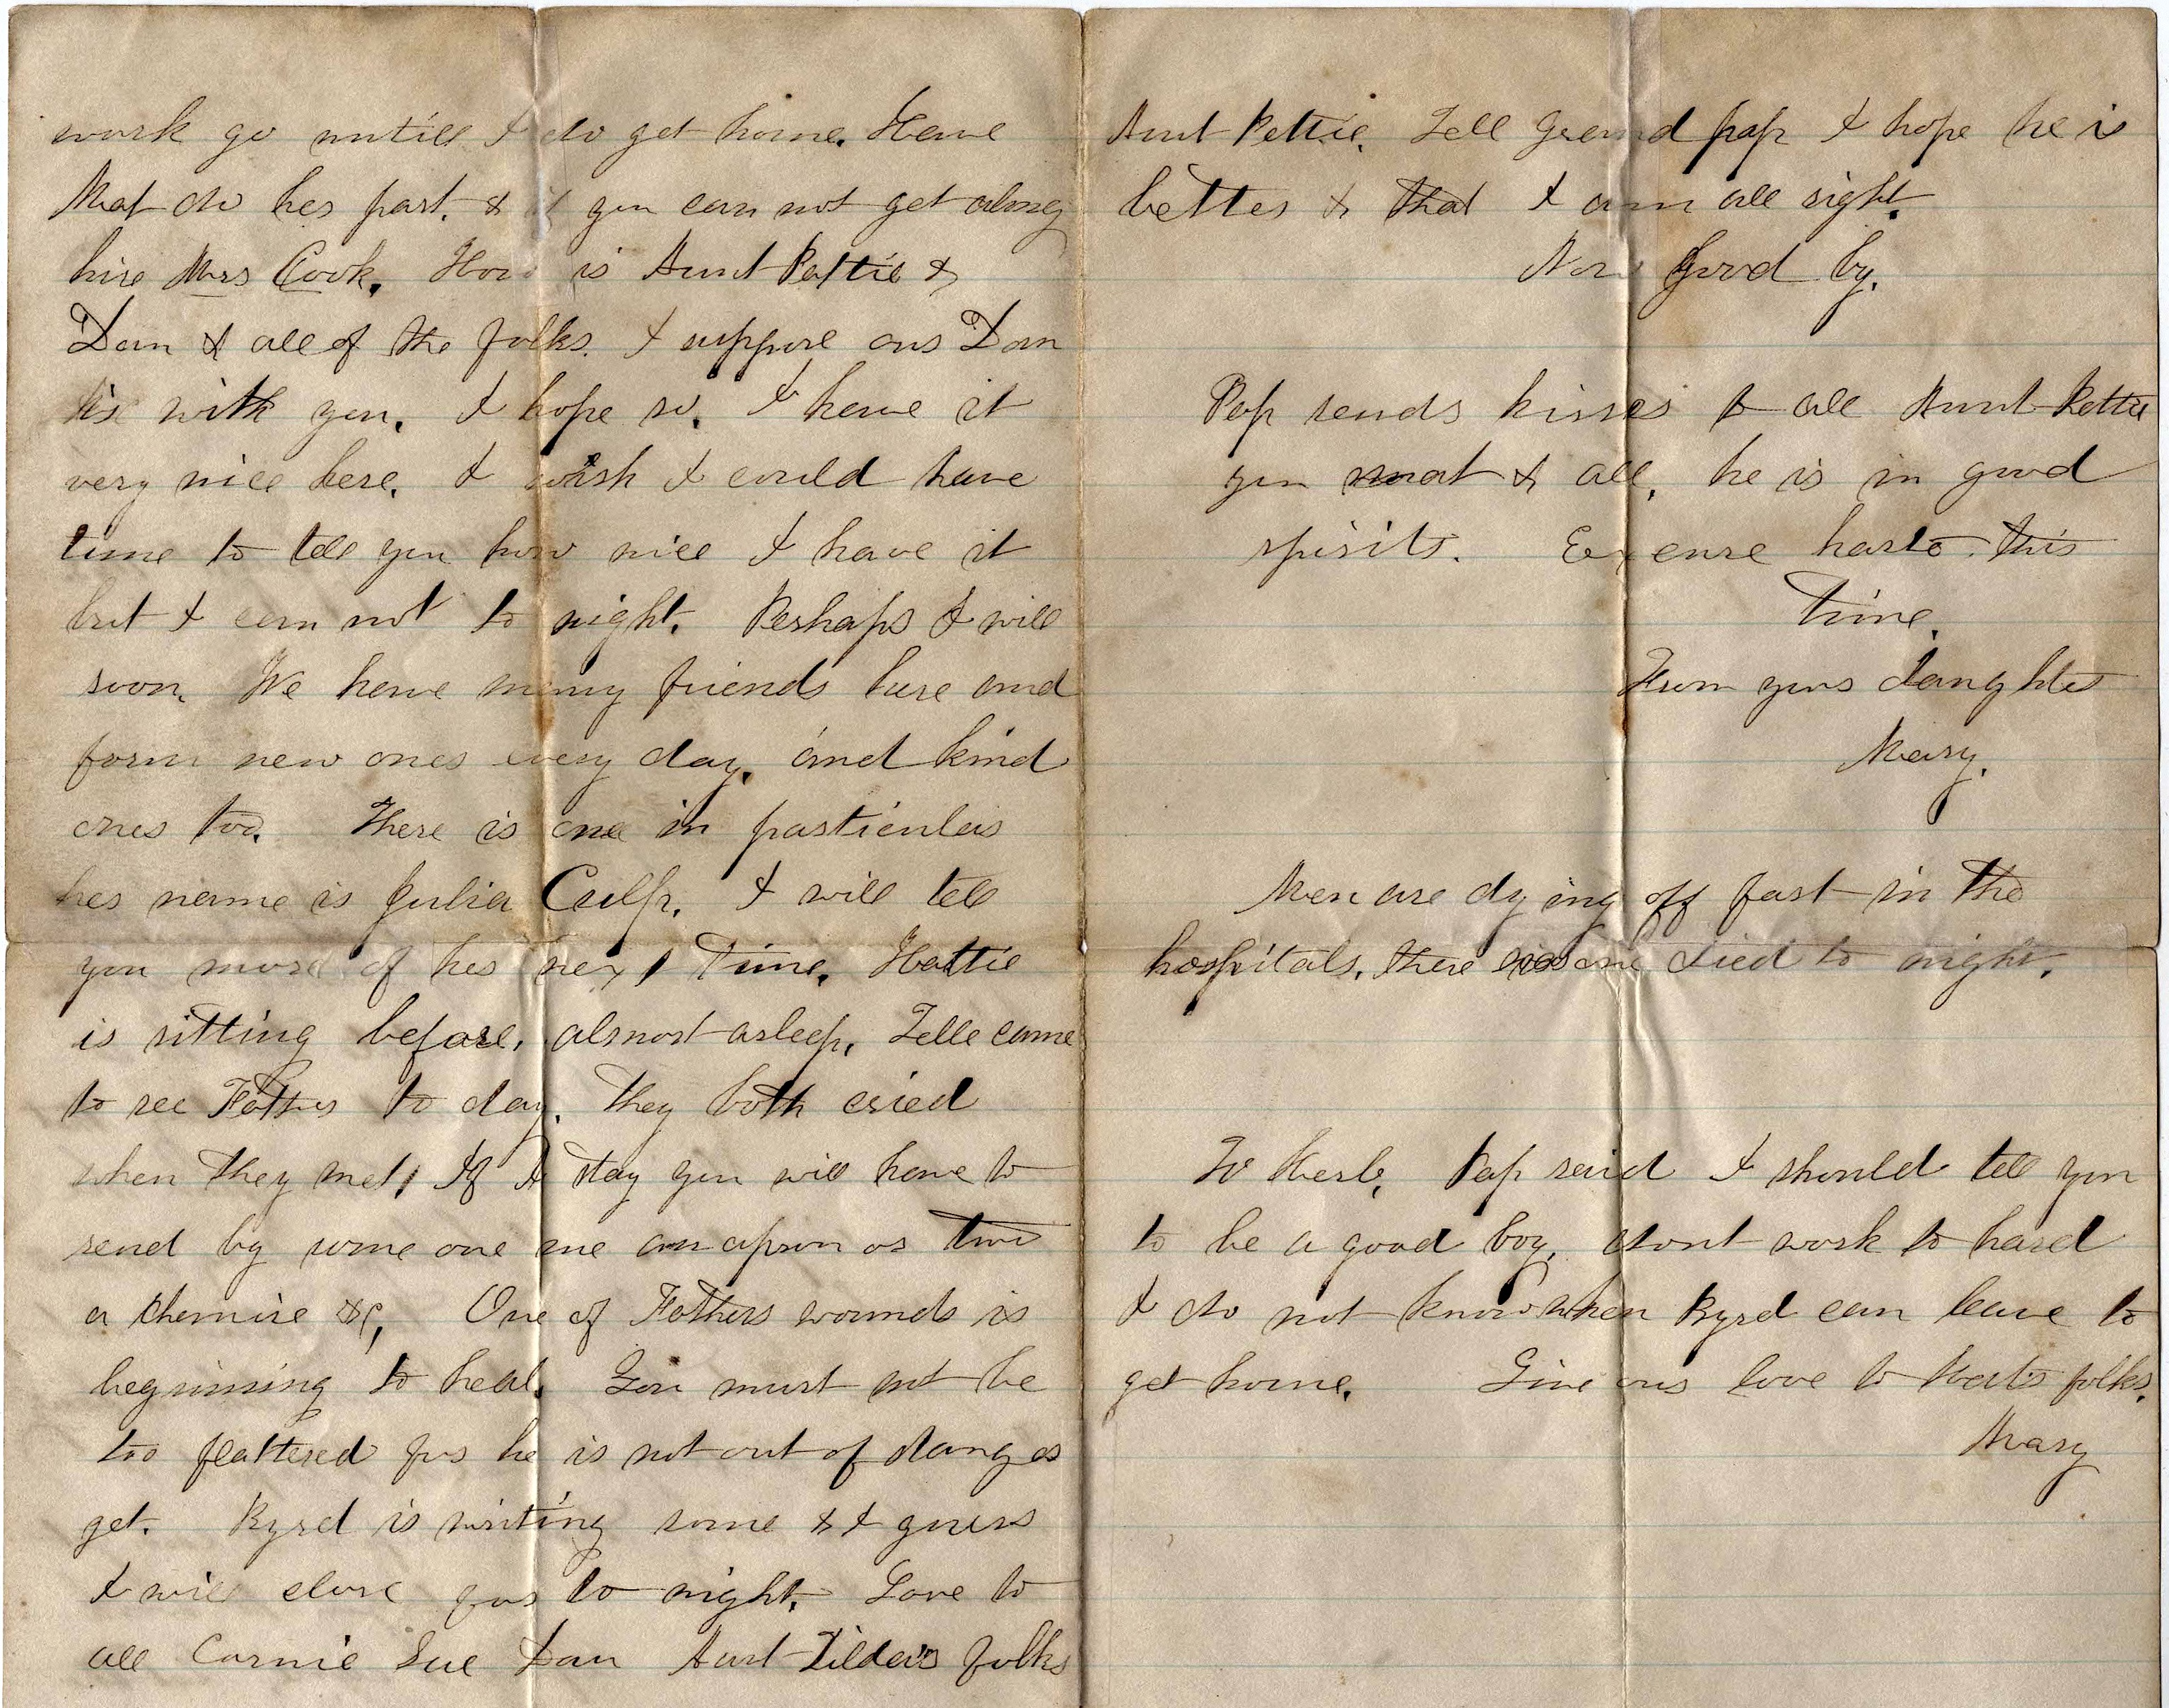 work go untill I do get home. Have
Mat do her part. & if you can not get along
hire Mrs Cook. How is Aunt Pettie &
Dan & all of the folks. I suppose our Dan
is with you. I hope so. I have it
very nice here. I wish I could have
time to tell you how nice I have it
but I can not to night. Perhaps I will
soon. We have many friends here and
form new ones every day. and kind
ones too. There is one in particular
her name is Julia Culp. I will tell
you more of her next time. Hattie
is sitting before, almost asleep. Zelle came
to see Father to day. They both cried
when they met, If I stay you will have to
send by some one me an apron or two
a chemise &c, One of Fathers wounds is
beginning to heal. You must not be
too flattered for he is not out of danger
yet. Byrd is writing some & I guess
I will close for to night. Love to
all Carnie Sue Dan Aunt Tilda's folks
Aunt Pettie. Tell Grand pap I hope he is
better & that I am all right.
Now good by.
Pap sends kisses to all Aunt Pettie
you mat & all, he is in good
spirits. Excuse haste this
time.
From your daughter
Mary.
Men are dying off fast in the
hospitals, there was one died to night.
To Herb, Pap said I should tell you
to be a good boy, dont work to hard
I do not know when Byrd can leave to
get home. Give our love to folks.
Mary